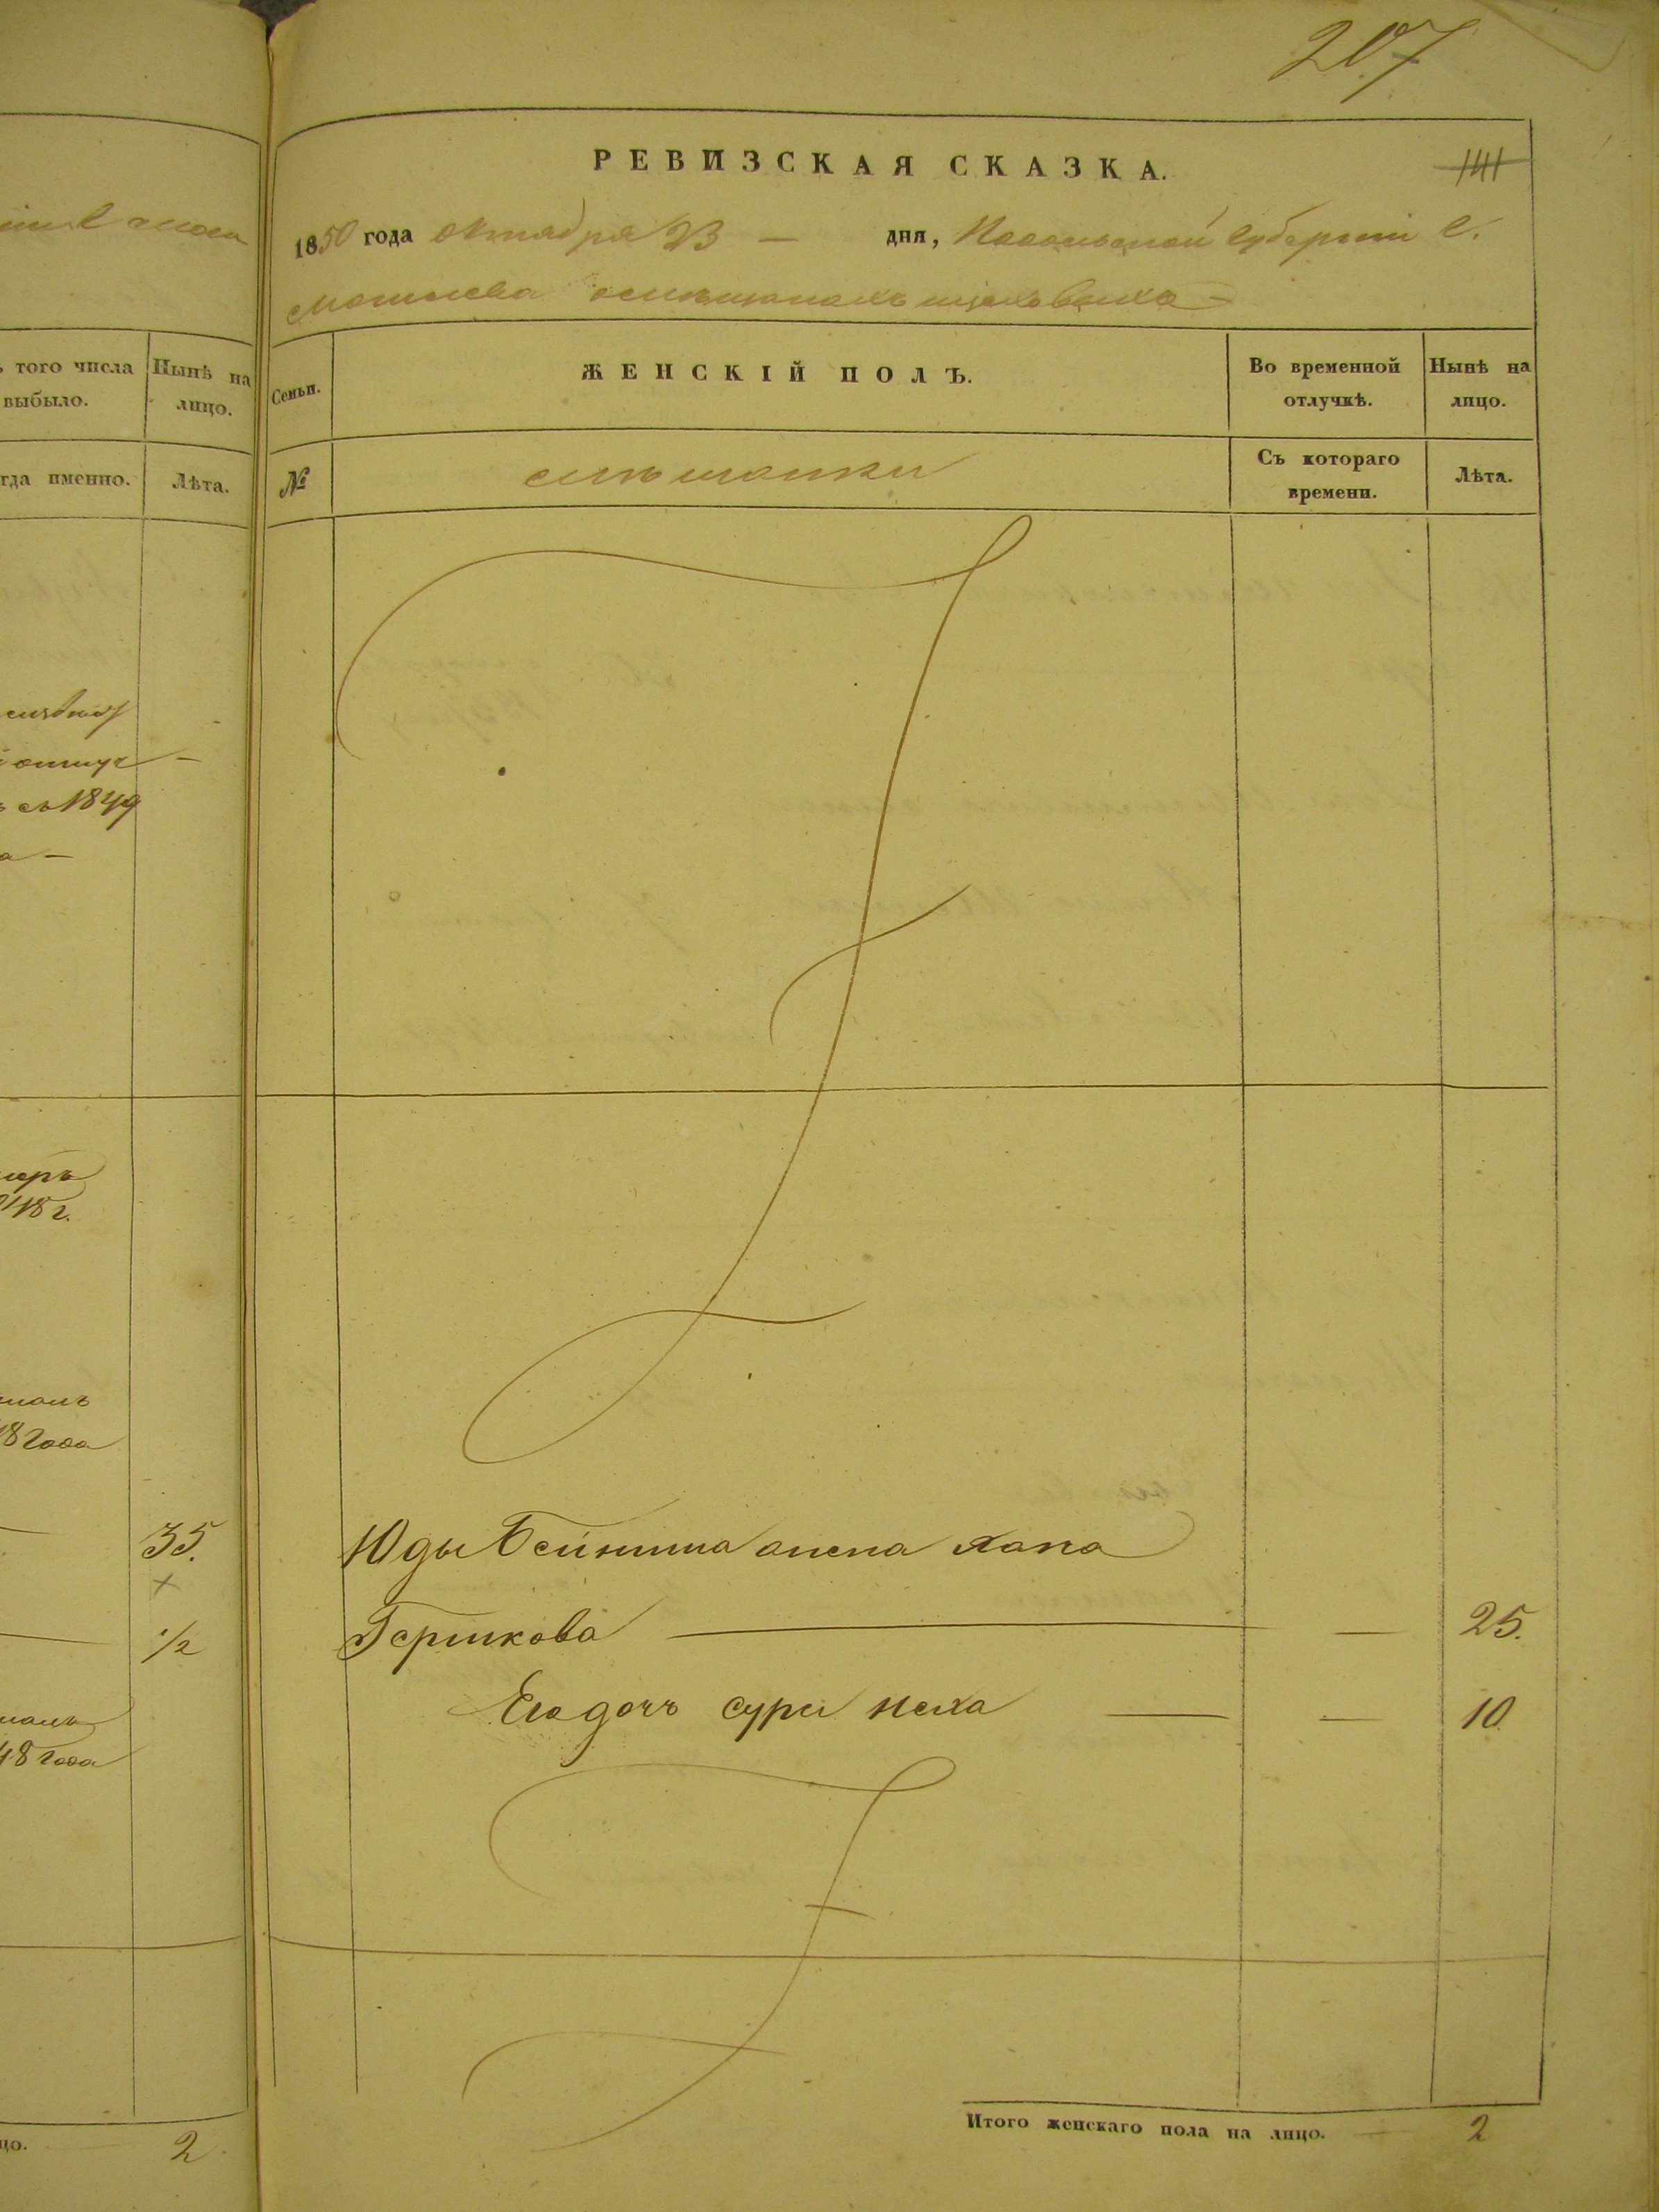 207
РЕВИЗСКАЯ СКАЗКА.
141
1850 года октября 23 — дня, Подольской Губернии Г.
Могилева о мѣщанахъ
ЖЕНСКІЙ ПОЛЪ.
Во временной отлучкѣ.
Нынѣ на лицо.
Семьи.
№
мѣщанки
Съ котораго времени.
Лѣта.
Юды Бейниша жена Хана
Гершкова — — 25.
Его дочь Сури Неха — — 10
Итого женскаго пола на лицо. 2
ъ того числа выбыло.
Нынѣ на лицо.
гда именно.
Лѣта.
съ 1849
35.
1/2
48 года
2